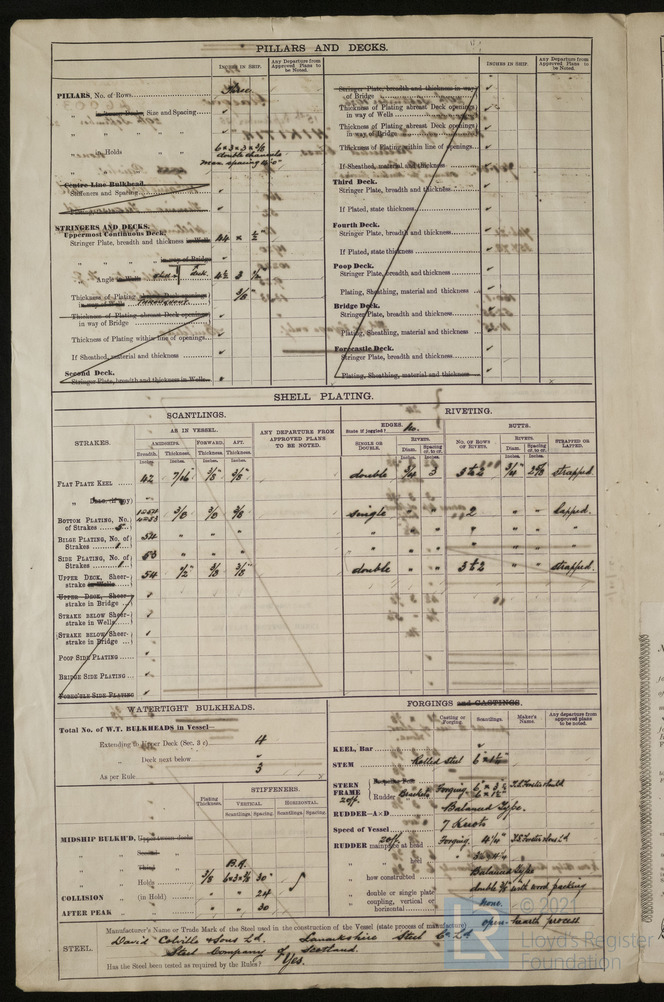 PILLARS AND DECKS.
INCHES IN SHIP.
Any Departure from Approved Plans to be Noted.
INCHES IN SHIP.
Any Departure from Approved Plans to be Noted.
PILLARS, No. of Rows
Size and Spacing
" " Holds
6 x 3 x 3 x 3/8
double channels
max spacing
Centre Line Bulkhead.
Stiffeners and Spacing
STRINGERS AND DECKS.
Uppermost Continuous Deck.
Stringer Plate, breadth and thickness in Wells
44 x 1/2
in way of Bridge
Angle in Wells
Thickness of Plating abreast Deck openings
in way of Wells
3/8
Thickness of Plating abreast Deck openings
in way of Bridge
Thickness of Plating within line of openings
If Sheathed, material and thickness
Second Deck.
Stringer Plate, breadth and thickness in Wells
Stringer Plate, breadth and thickness in way
of Bridge
Thickness of Plating abreast Deck openings
in way of Wells
Thickness of Plating abreast Deck openings
in way of Bridge
Thickness of Plating within line of openings
If Sheathed, material and thickness
Third Deck.
Stringer Plate, breadth and thickness
If Plated, state thickness
Fourth Deck.
Stringer Plate, breadth and thickness
If Plated, state thickness
Poop Deck.
Stringer Plate, breadth and thickness
Plating, Sheathing, material and thickness
Bridge Deck.
Stringer Plate, breadth and thickness
Plating, Sheathing, material and thickness
Forecastle Deck.
Stringer Plate, breadth and thickness
Plating, Sheathing, material and thickness
SHELL PLATING.
SCANTLINGS.
RIVETING.
STRAKES.
AS IN VESSEL.
ANY DEPARTURE FROM APPROVED PLANS TO BE NOTED.
EDGES.
State if joggled? No.
BUTTS.
AMIDSHIPS. FORWARD. AFT.
Breadth. Thickness. Thickness. Thickness.
Inches. Inches. Inches. Inches.
SINGLE OR DOUBLE.
RIVETS.
Diam. Inches.
Spacing cr. to cr. Inches.
NO. OF ROWS OF RIVETS.
RIVETS.
Diam. Inches.
Spacing cr. to cr. Inches.
STRAPPED OR LAPPED.
FLAT PLATE KEEL 42 7/16" 3/8" 3/8" double 3/4 3 3 & 2 3/4 strapped.
" DBLG. (if any)
BOTTOM PLATING, No. of Strakes 5 3/8 3/8 3/8 single " " 2 " " lapped.
BILGE PLATING, No. of Strakes 1 54 " " " " " " " " " "
SIDE PLATING, No. of Strakes 1 53 " " " " " " " " " "
UPPER DECK, Sheerstrake in Wells 54 1/2" 3/8 3/8" double " " 3 & 2 " " strapped.
UPPER DECK, Sheerstrake in Bridge
STRAKE BELOW Sheerstrake in Wells
STRAKE BELOW Sheerstrake in Bridge
POOP SIDE PLATING
BRIDGE SIDE PLATING
FOREC'SLE SIDE PLATING
WATERTIGHT BULKHEADS.
Total No. of W.T. BULKHEADS in Vessel—
Extending to Upper Deck (Sec. 3 c) 4
" Deck next below "
As per Rule 3
STIFFENERS.
Plating Thickness.
VERTICAL. HORIZONTAL.
Scantlings. Spacing. Scantlings. Spacing.
MIDSHIP BULKH'D, Upper tween decks
" Second "
" Third "
B.A.
" Holds 3/8 30"
COLLISION " (in Hold) " " 24
AFTER PEAK " " " 30
FORGINGS and CASTINGS.
Casting or Forging.
Scantlings.
Maker's Name.
Any departure from approved plans to be noted.
KEEL, Bar
STEM Rolled Steel
STERN FRAME
Propeller Post
Rudder Brackets Forging.
RUDDER—A×D Balanced Type.
Speed of Vessel 7 Knots
RUDDER mainpiece at head Forging.
" " heel
" how constructed Balanced Type
" double or single plate double 3/8" with wood packing
" coupling, vertical or horizontal none.
STEEL.
Manufacturer's Name or Trade Mark of the Steel used in the construction of the Vessel (state process of manufacture) open-hearth process
David Colville & Sons Ld. Lanarkshire Steel Co Ld
Steel Company of Scotland.
Has the Steel been tested as required by the Rules? Yes.
© 2021
LR
Lloyd's Register
Foundation